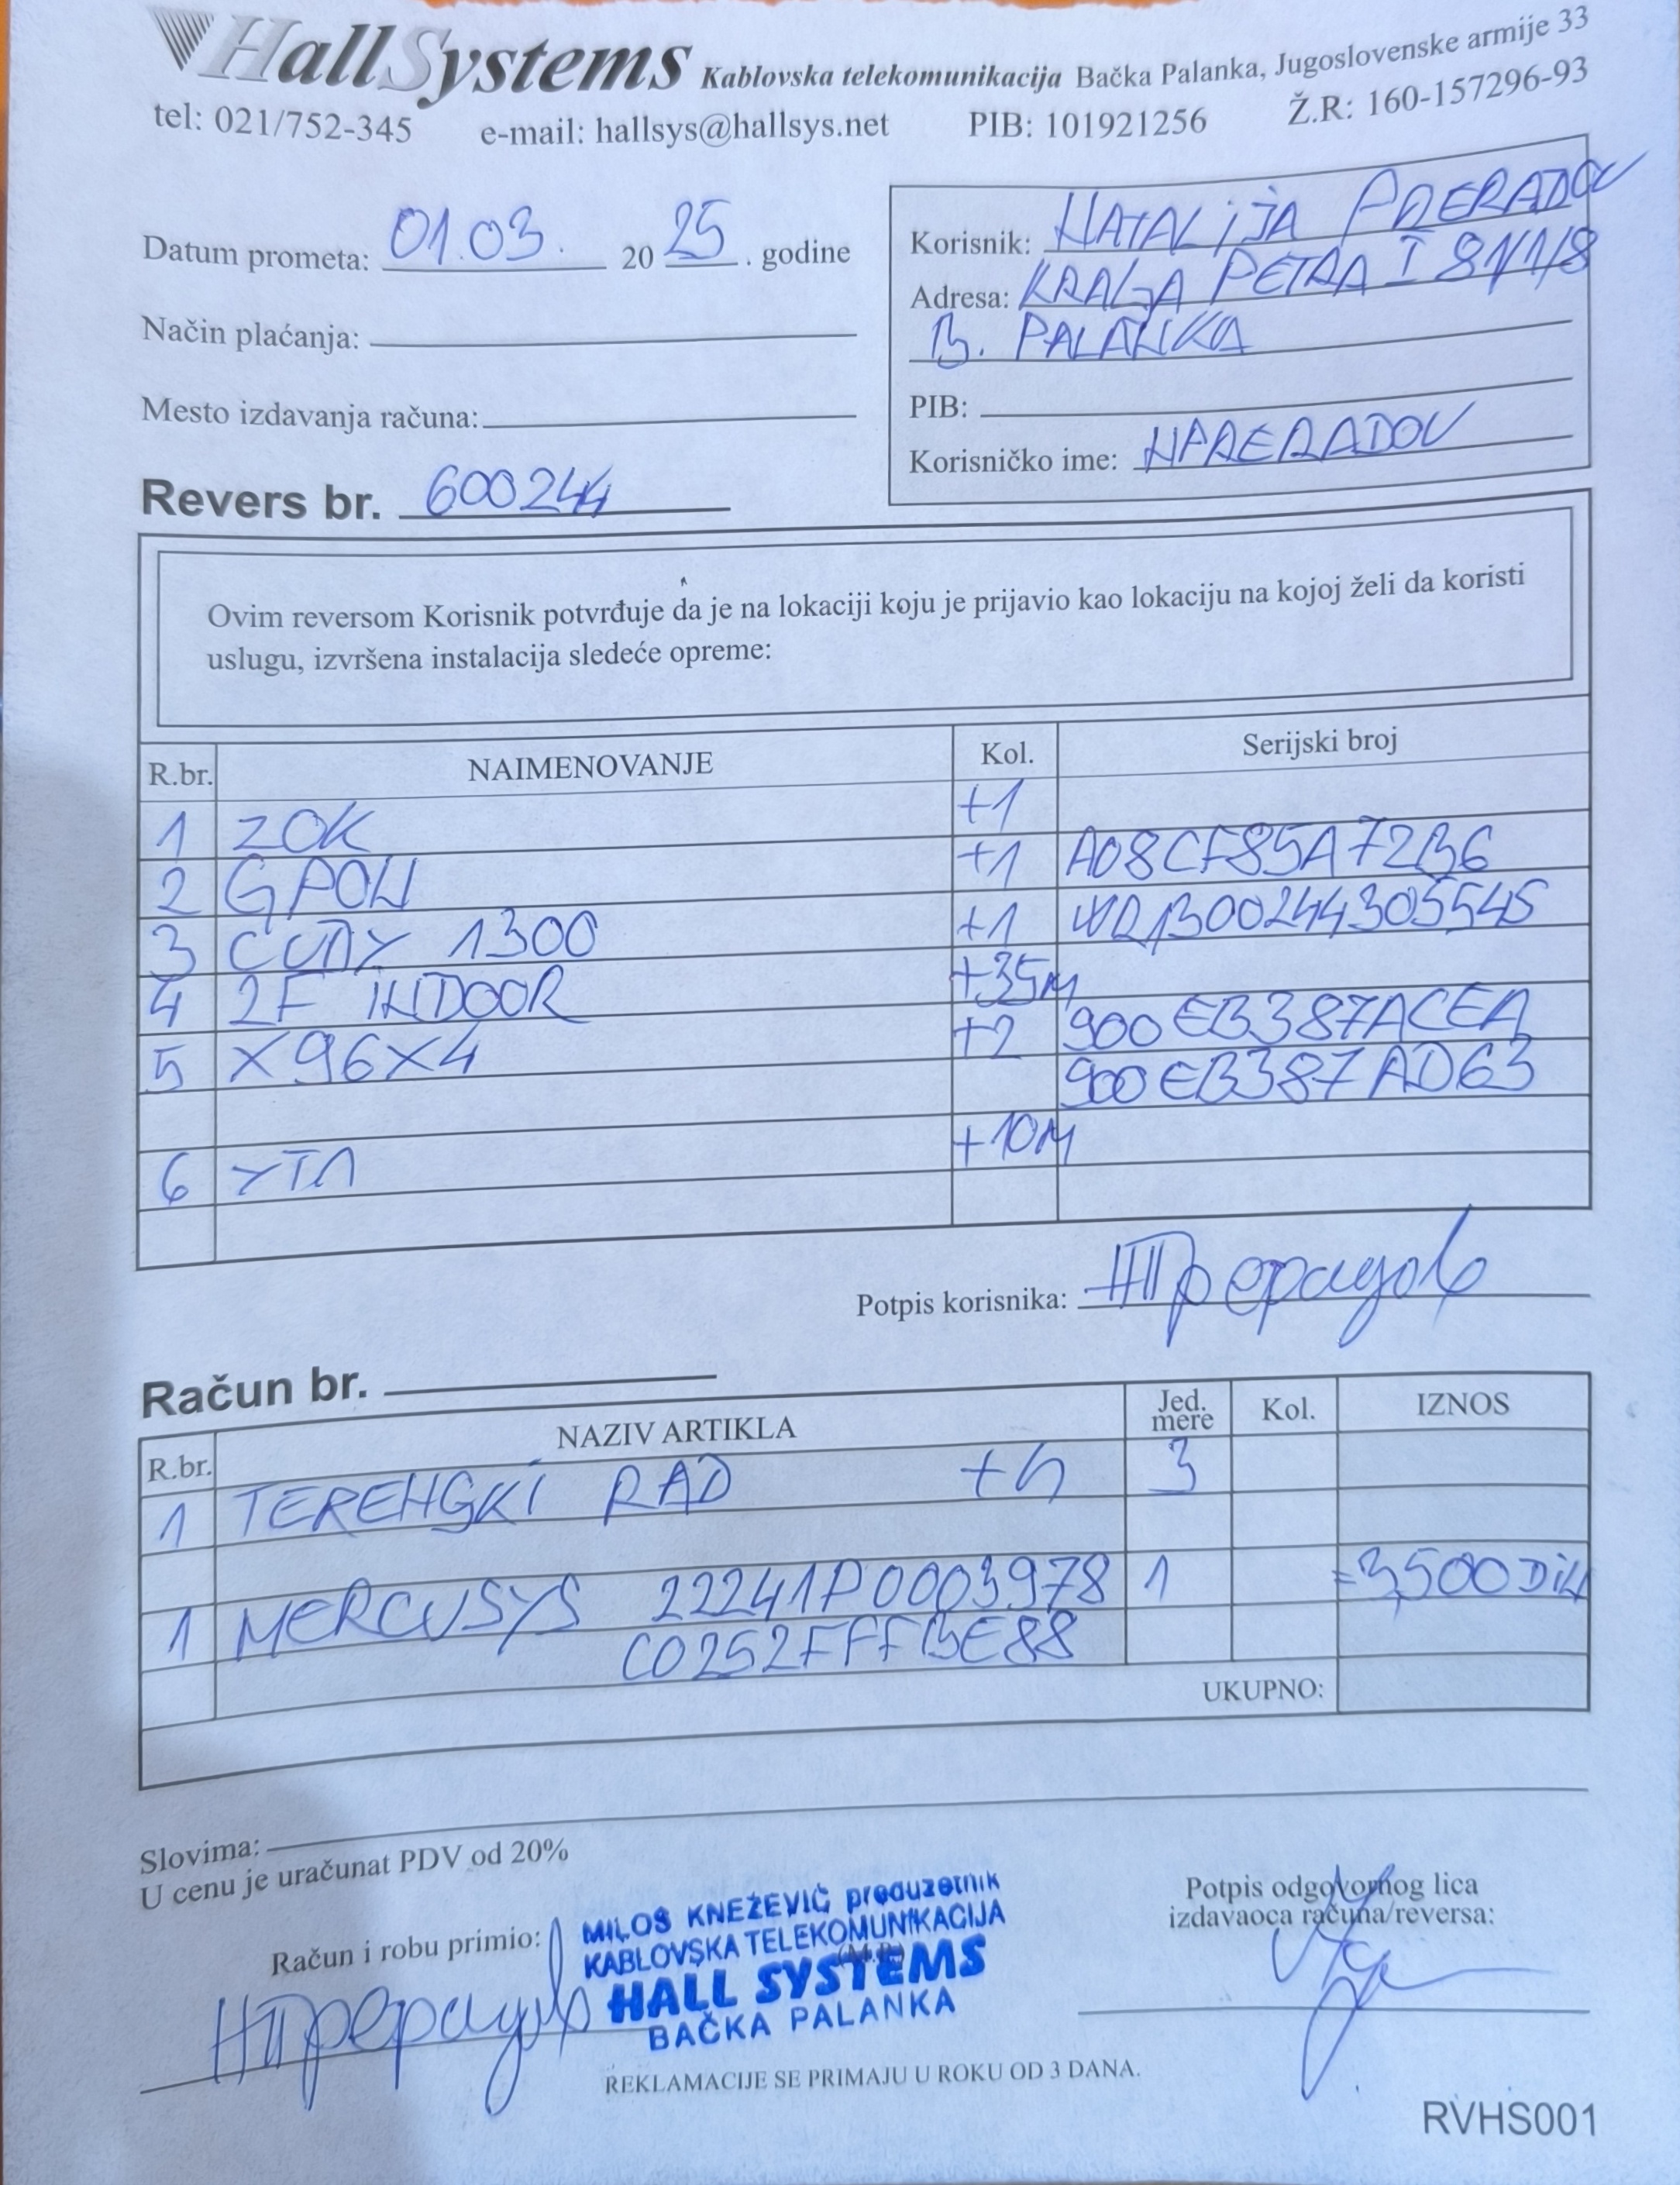 HallSystems Kablovska telekomunikacija Bačka Palanka, Jugoslovenske armije 33
tel: 021/752-345 e-mail: hallsys@hallsys.net PIB: 101921256 Ž.R: 160-157296-93
Datum prometa: 01.03. 2025. godine
Način plaćanja:
Mesto izdavanja računa:
Korisnik: NATALIJA PRERADOV
Adresa: KRALJA PETRA I 81/1/8
B. PALANKA
PIB:
Korisničko ime: NPRERADOV
Revers br. 600244
Ovim reversom Korisnik potvrđuje da je na lokaciji koju je prijavio kao lokaciju na kojoj želi da koristi
uslugu, izvršena instalacija sledeće opreme:
R.br. NAIMENOVANJE Kol. Serijski broj
1 ZOK +1
2 GPON +1 A08CF85A72B6
3 CUDY 1300 +1 WR1300244305545
4 2F INDOOR +35M
5 X96X4 +2 900EB387ACEA
900EB387AD63
6 УТП +10M
Potpis korisnika: НПрерадов
Račun br.
R.br. NAZIV ARTIKLA Jed. mere Kol. IZNOS
1 TERENSKI RAD +h 3
1 MERCUSYS 22241P0003978 1 =3,500 DIN
C0252FFFBE88
UKUPNO:
Slovima:
U cenu je uračunat PDV od 20%
Račun i robu primio:
НПрерадов
MILOŠ KNEŽEVIĆ preduzetnik
KABLOVSKA TELEKOMUNIKACIJA
(M.P.)
HALL SYSTEMS
BAČKA PALANKA
Potpis odgovornog lica
izdavaoca računa/reversa:
REKLAMACIJE SE PRIMAJU U ROKU OD 3 DANA.
RVHS001